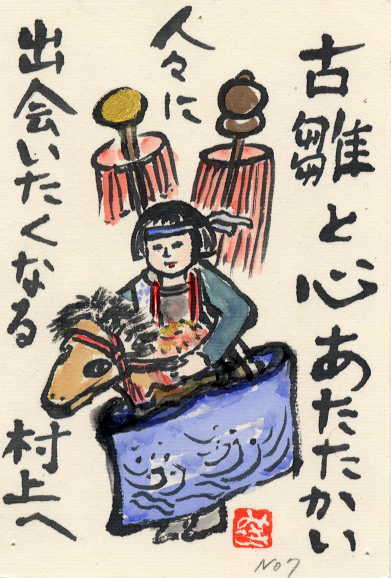 古雛と心あたたかい
人々に
出会いたくなる
村上へ
No7